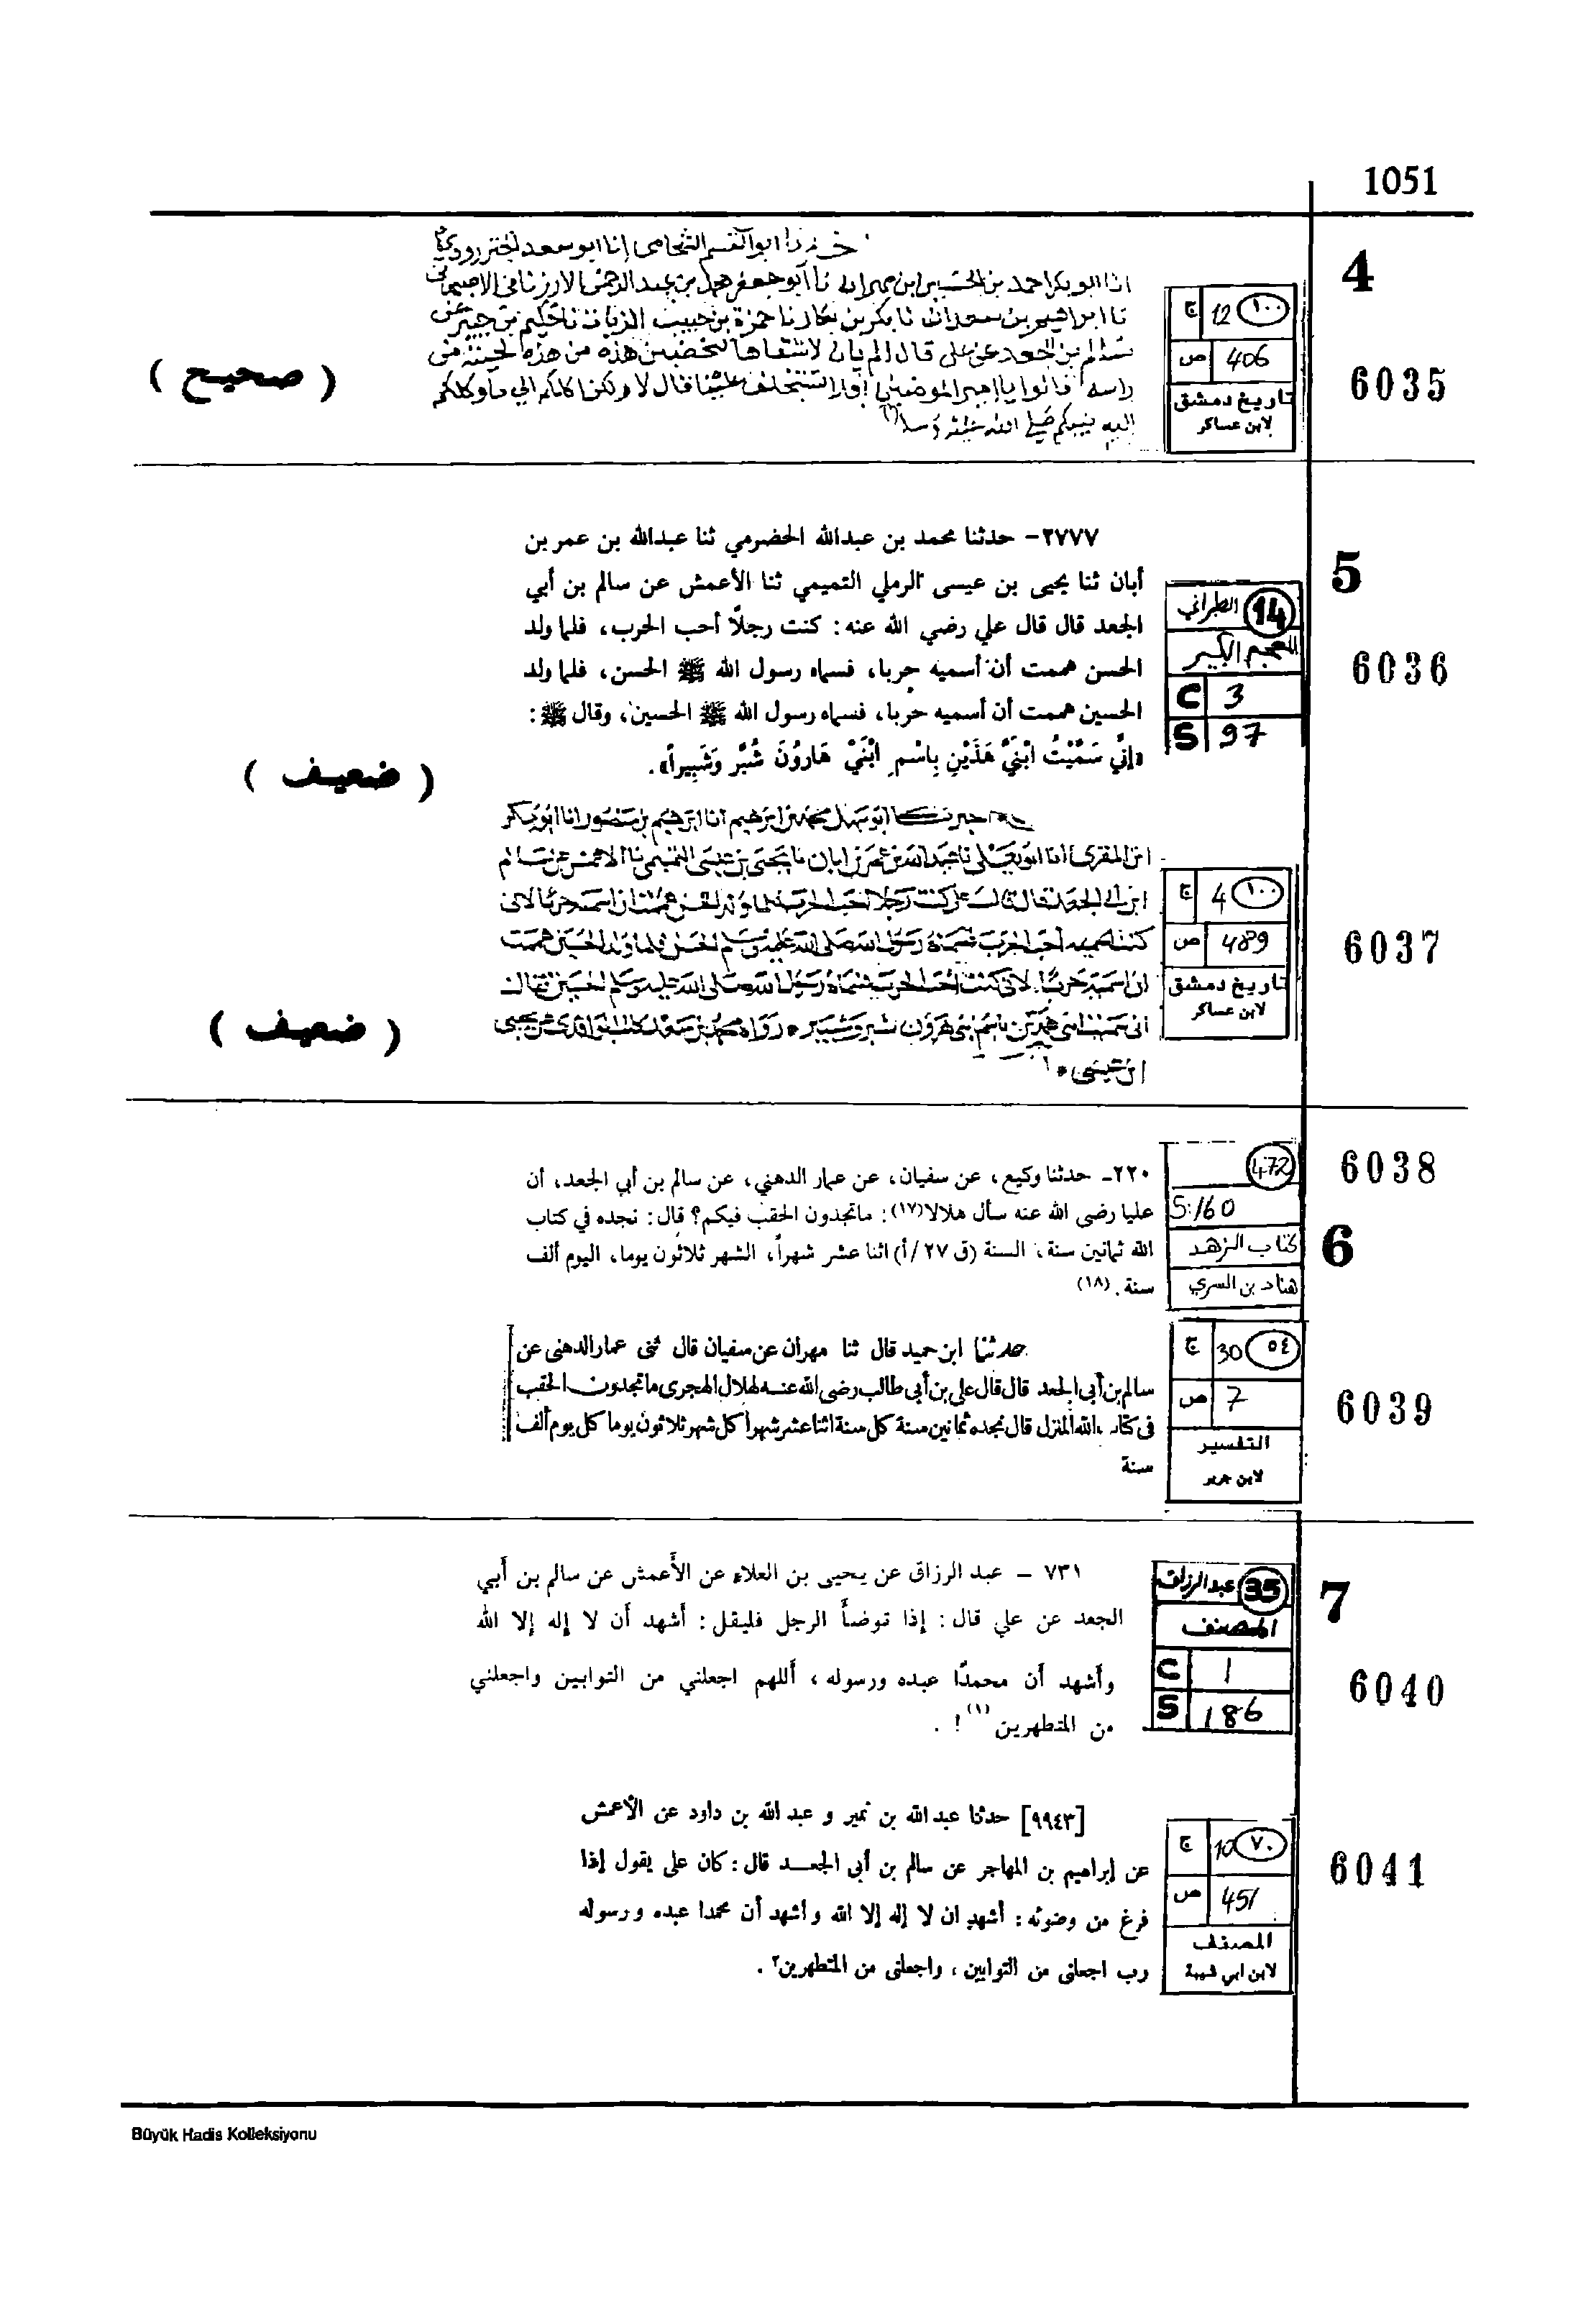 1051
4
6035
ج 12 ١٠٠
ص 406
تاريخ دمشق
لابن عساكر
ابو القسم الشحامى انا ابو سعد
انا ابو بكر احمد بن الحسين ابن مهران نا ابو جعفر محمد بن عبد الرحمن الارزنانى الاصبهانى
نا ابراهيم بن سعدان نا بكر بن بكار نا حمزة بن حبيب الزيات نا حكيم بن جبير عن
سالم بن الجعد عن على قال لتخضبن هذه من هذه لحيته من
راسه قالوا يا امير المومنين علينا قال لا ولكن اكلكم الى ما وكلكم
اليه نبيكم صلى الله عليه وسلم
( صحيح )
5
6036
14 الطبراني
المعجم الكبير
C 3
S 97
٢٧٧٧- حدثنا محمد بن عبدالله الحضرمي ثنا عبدالله بن عمر بن
أبان ثنا يحيى بن عيسى الرملي التميمي ثنا الأعمش عن سالم بن أبي
الجعد قال قال علي رضي الله عنه: كنت رجلاً أحب الحرب، فلما ولد
الحسن هممت أن أسميه حربا، فسماه رسول الله ﷺ الحسن، فلما ولد
الحسين هممت أن أسميه حربا، فسماه رسول الله ﷺ الحسين، وقال ﷺ:
«إِنِّي سَمَّيْتُ ابْنَيَّ هَذَيْنِ بِاسْمِ ابْنَيْ هَارُونَ شُبَّر وَشَبِيراً».
( ضعيف )
6037
ج 4 ١٠٠
ص 489
تاريخ دمشق
لابن عساكر
ابو سهل محمد بن ابرهيم انا ابرهيم بن منصور انا ابو بكر
ابن المقرى انا ابو يعلى نا عبد الله بن عمر بن ابان نا يحيى بن عيسى التميمى نا الاعمش عن سالم
ابن ابى الجعد قال قال على كنت رجلا احب الحرب فلما ولد الحسن هممت ان اسميه حربا لانى
كنت احب الحرب فسماه رسول الله صلى الله عليه وسلم الحسن فلما ولد الحسين هممت
ان اسميه حربا لانى كنت احب الحرب فسماه رسول الله صلى الله عليه وسلم الحسين فقال
انى سميت ابنى هذين باسم ابنى هرون شبر وشبير رواه محمد بن سعد كاتب الواقدى عن يحيى
ابن عيسى
( ضعيف )
6038
472
S:160
كتاب الزهد
هناد بن السري
6
٢٢٠- حدثنا وكيع، عن سفيان، عن عمار الدهني، عن سالم بن أبي الجعد، أن
عليا رضى الله عنه سأل هلالا(١٧): ماتجدون الحقب فيكم؟ قال: نجده في كتاب
الله ثمانين سنة، السنة (ق ٢٧/أ) اثنا عشر شهراً، الشهر ثلاثون يوما، اليوم ألف
سنة. (١٨)
6039
ج 30 ٥٤
ص 7
التفسير
لابن جرير
حدثنا ابن حميد قال ثنا مهران عن سفيان قال ثنى عمار الدهنى عن
سالم بن أبى الجعد قال قال على بن أبى طالب رضى الله عنه لهلال الهجرى ما تجدون الحقب
فى كتاب الله المنزل قال نجده ثمانين سنة كل سنة اثنا عشر شهرا كل شهر ثلاثون يوما كل يوم ألف
سنة
7
6040
35 عبد الرزاق
المصنف
C 1
S 186
٧٣١ – عبد الرزاق عن يحيى بن العلاء عن الأَعمش عن سالم بن أبي
الجعد عن علي قال: إذا توضأَ الرجل فليقل: أشهد أن لا إله إلا الله
وأَشهد أن محمدًا عبده ورسوله، أَللهم اجعلني من التوابين واجعلني
من المتطهرين(١)! .
6041
ج 10 ٧٠
ص 451
المصنف
لابن ابي شيبة
[٩٩٤٣] حدثنا عبد الله بن نمير و عبد الله بن داود عن الأعمش
عن إبراهيم بن المهاجر عن سالم بن أبى الجعد قال: كان على يقول إذا
فرغ من وضوئه: أشهد ان لا إله إلا الله و أشهد أن محمدا عبده و رسوله
رب اجعلنى من التوابين، واجعلنى من المتطهرين٢.
Büyük Hadis Kolleksiyonu